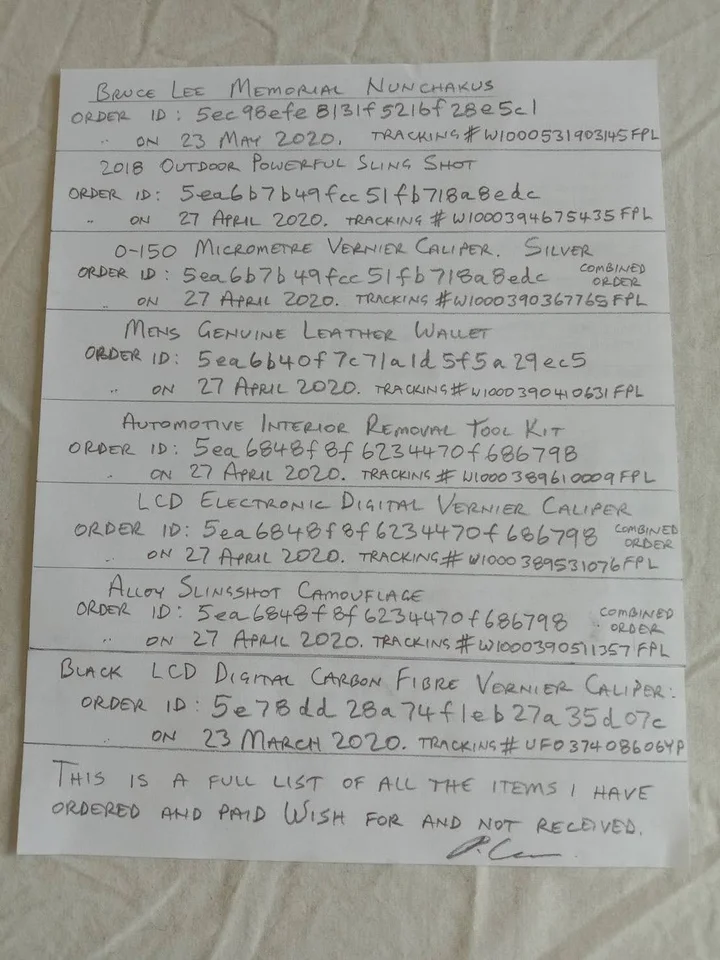 BRUCE LEE MEMORIAL NUNCHAKUS
ORDER ID: 5ec98efe8131f5216f28e5c1
" ON 23 MAY 2020. TRACKING# W1000531903145FPL
2018 OUTDOOR POWERFUL SLING SHOT
ORDER ID: 5ea6b7b49fcc51fb718a8edc
" ON 27 APRIL 2020. TRACKING # W1000394675435FPL
0-150 MICROMETRE VERNIER CALIPER. SILVER
ORDER ID: 5ea6b7b49fcc51fb718a8edc COMBINED ORDER
" ON 27 APRIL 2020. TRACKING #W1000390367765FPL
MENS GENUINE LEATHER WALLET
ORDER ID: 5ea6b40f7c71a1d5f5a29ec5
" ON 27 APRIL 2020. TRACKING# W1000390410631FPL
AUTOMOTIVE INTERIOR REMOVAL TOOL KIT
ORDER ID: 5ea6848f8f6234470f686798
" ON 27 APRIL 2020. TRACKING# W1000389610009FPL
LCD ELECTRONIC DIGITAL VERNIER CALIPER
ORDER ID: 5ea6848f8f6234470f686798 COMBINED ORDER
" ON 27 APRIL 2020. TRACKING# W1000389531076FPL
ALLOY SLINGSHOT CAMOUFLAGE
ORDER ID: 5ea6848f8f6234470f686798 COMBINED ORDER
" ON 27 APRIL 2020. TRACKING# W1000390511357FPL
BLACK LCD DIGITAL CARBON FIBRE VERNIER CALIPER:
ORDER ID: 5e78dd28a74f1eb27a35d07c
" ON 23 MARCH 2020. TRACKING# UF037408606YP
THIS IS A FULL LIST OF ALL THE ITEMS I HAVE
ORDERED AND PAID WISH FOR AND NOT RECEIVED.